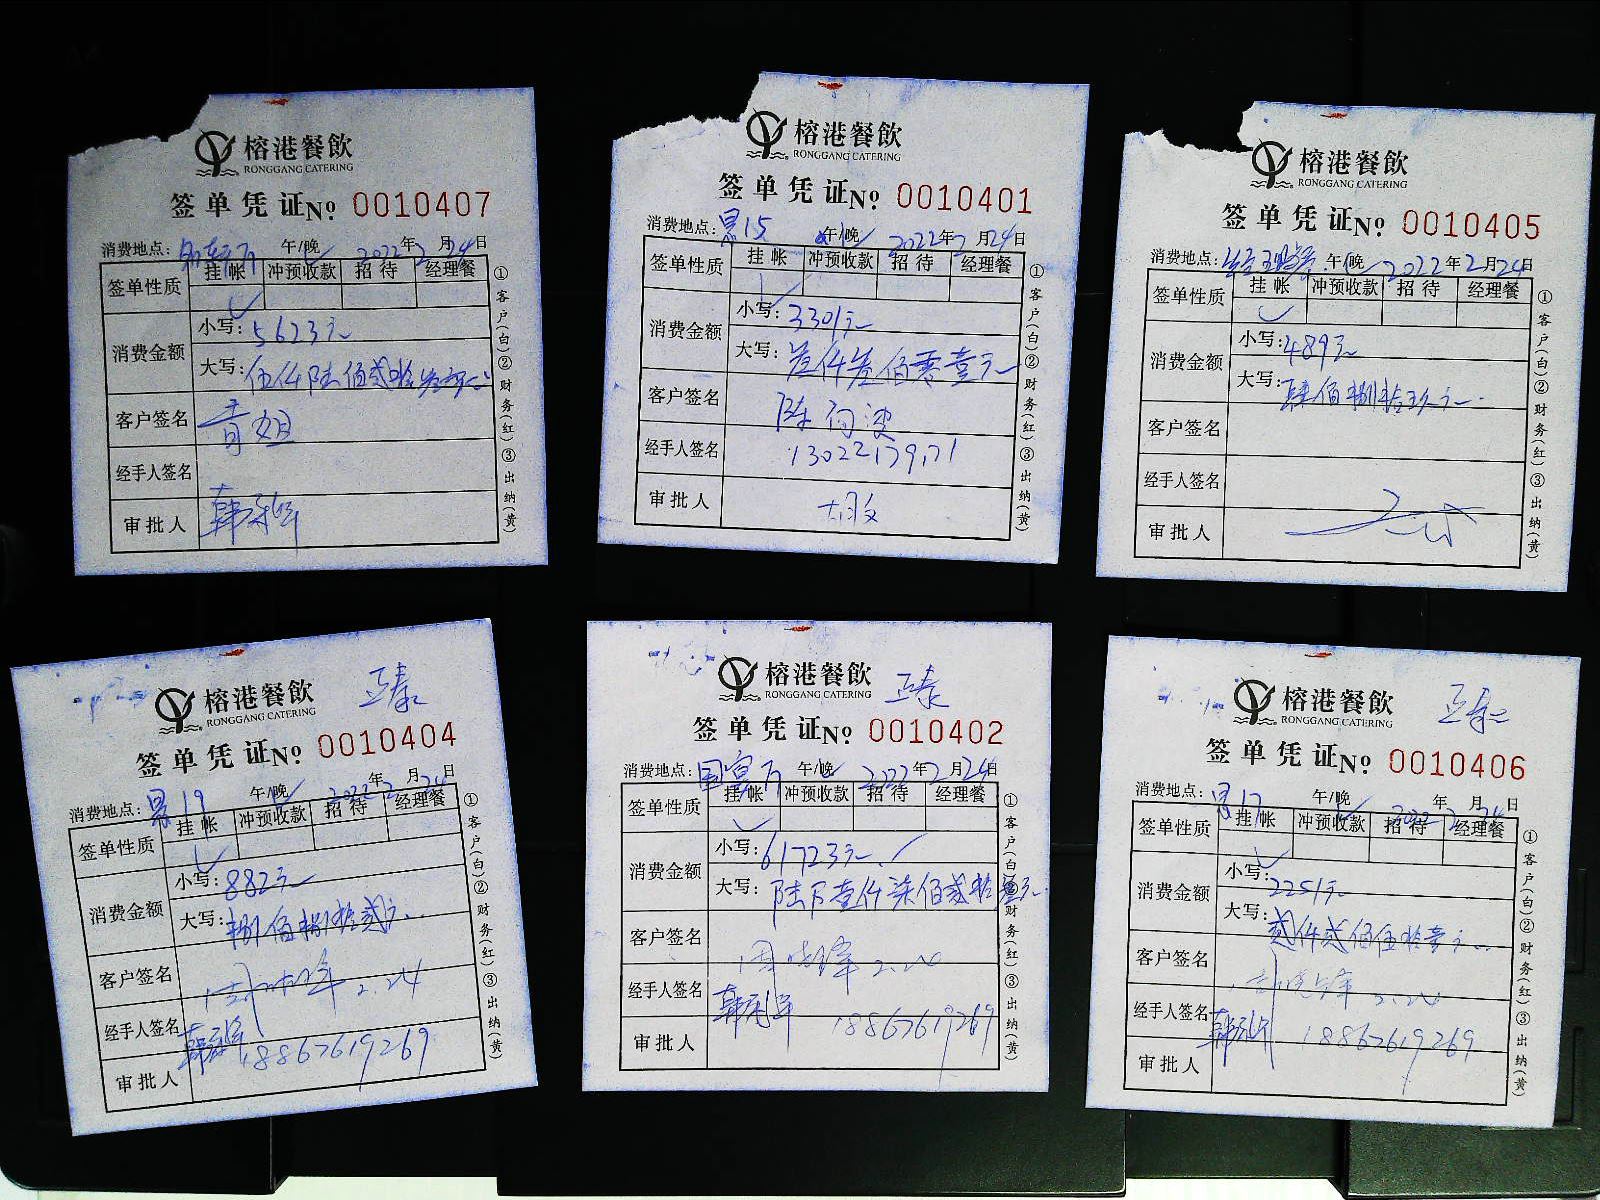 榕港餐飲
RONGGANG CATERING
签单凭证No. 0010407
消费地点: 午/晚 2022年2月24日
签单性质 挂帐 冲预收款 招待 经理餐
消费金额 小写: 5623元
大写: 伍仟陆佰贰拾叁元
客户签名 青姐
经手人签名
审批人
①客户(白)②财务(红)③出纳(黄)
榕港餐飲
RONGGANG CATERING
签单凭证No. 0010401
消费地点: 15 午/晚 2022年2月24日
签单性质 挂帐 冲预收款 招待 经理餐
消费金额 小写: 3301元
大写: 叁仟叁佰零壹元
客户签名 陈
经手人签名
审批人
①客户(白)②财务(红)③出纳(黄)
榕港餐飲
RONGGANG CATERING
签单凭证No. 0010405
消费地点: 午/晚 2022年2月24日
签单性质 挂帐 冲预收款 招待 经理餐
消费金额 小写: 489元
大写: 肆佰捌拾玖元
客户签名
经手人签名
审批人
①客户(白)②财务(红)③出纳(黄)
榕港餐飲
RONGGANG CATERING
正泰
签单凭证No. 0010404
消费地点: 19 午/晚 2022年2月24日
签单性质 挂帐 冲预收款 招待 经理餐
消费金额 小写: 882元
大写: 捌佰捌拾贰元
客户签名 2.24
经手人签名 18867619269
审批人
①客户(白)②财务(红)③出纳(黄)
榕港餐飲
RONGGANG CATERING
正泰
签单凭证No. 0010402
消费地点: 国宴厅 午/晚 2022年2月24日
签单性质 挂帐 冲预收款 招待 经理餐
消费金额 小写: 61723元
大写: 陆万壹仟柒佰贰拾叁元
客户签名 2.24
经手人签名 18867619269
审批人
①客户(白)②财务(红)③出纳(黄)
榕港餐飲
RONGGANG CATERING
正泰
签单凭证No. 0010406
消费地点: 17 午/晚 2022年2月24日
签单性质 挂帐 冲预收款 招待 经理餐
消费金额 小写: 2251元
大写: 贰仟贰佰伍拾壹元
客户签名 2.24
经手人签名 18867619269
审批人
①客户(白)②财务(红)③出纳(黄)